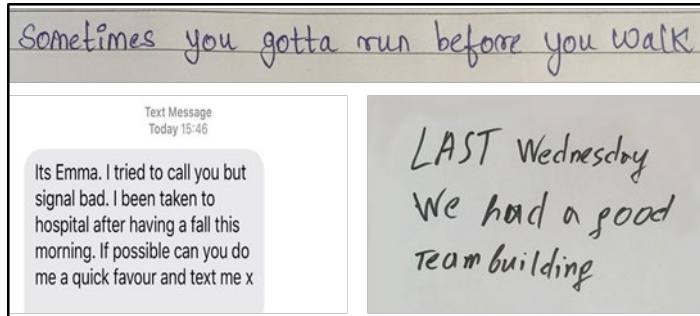 Sometimes you gotta run before you walk
Text Message
Today 15:46
Its Emma. I tried to call you but
signal bad. I been taken to
hospital after having a fall this
morning. If possible can you do
me a quick favour and text me x
LAST Wednesday
We had a good
Team building